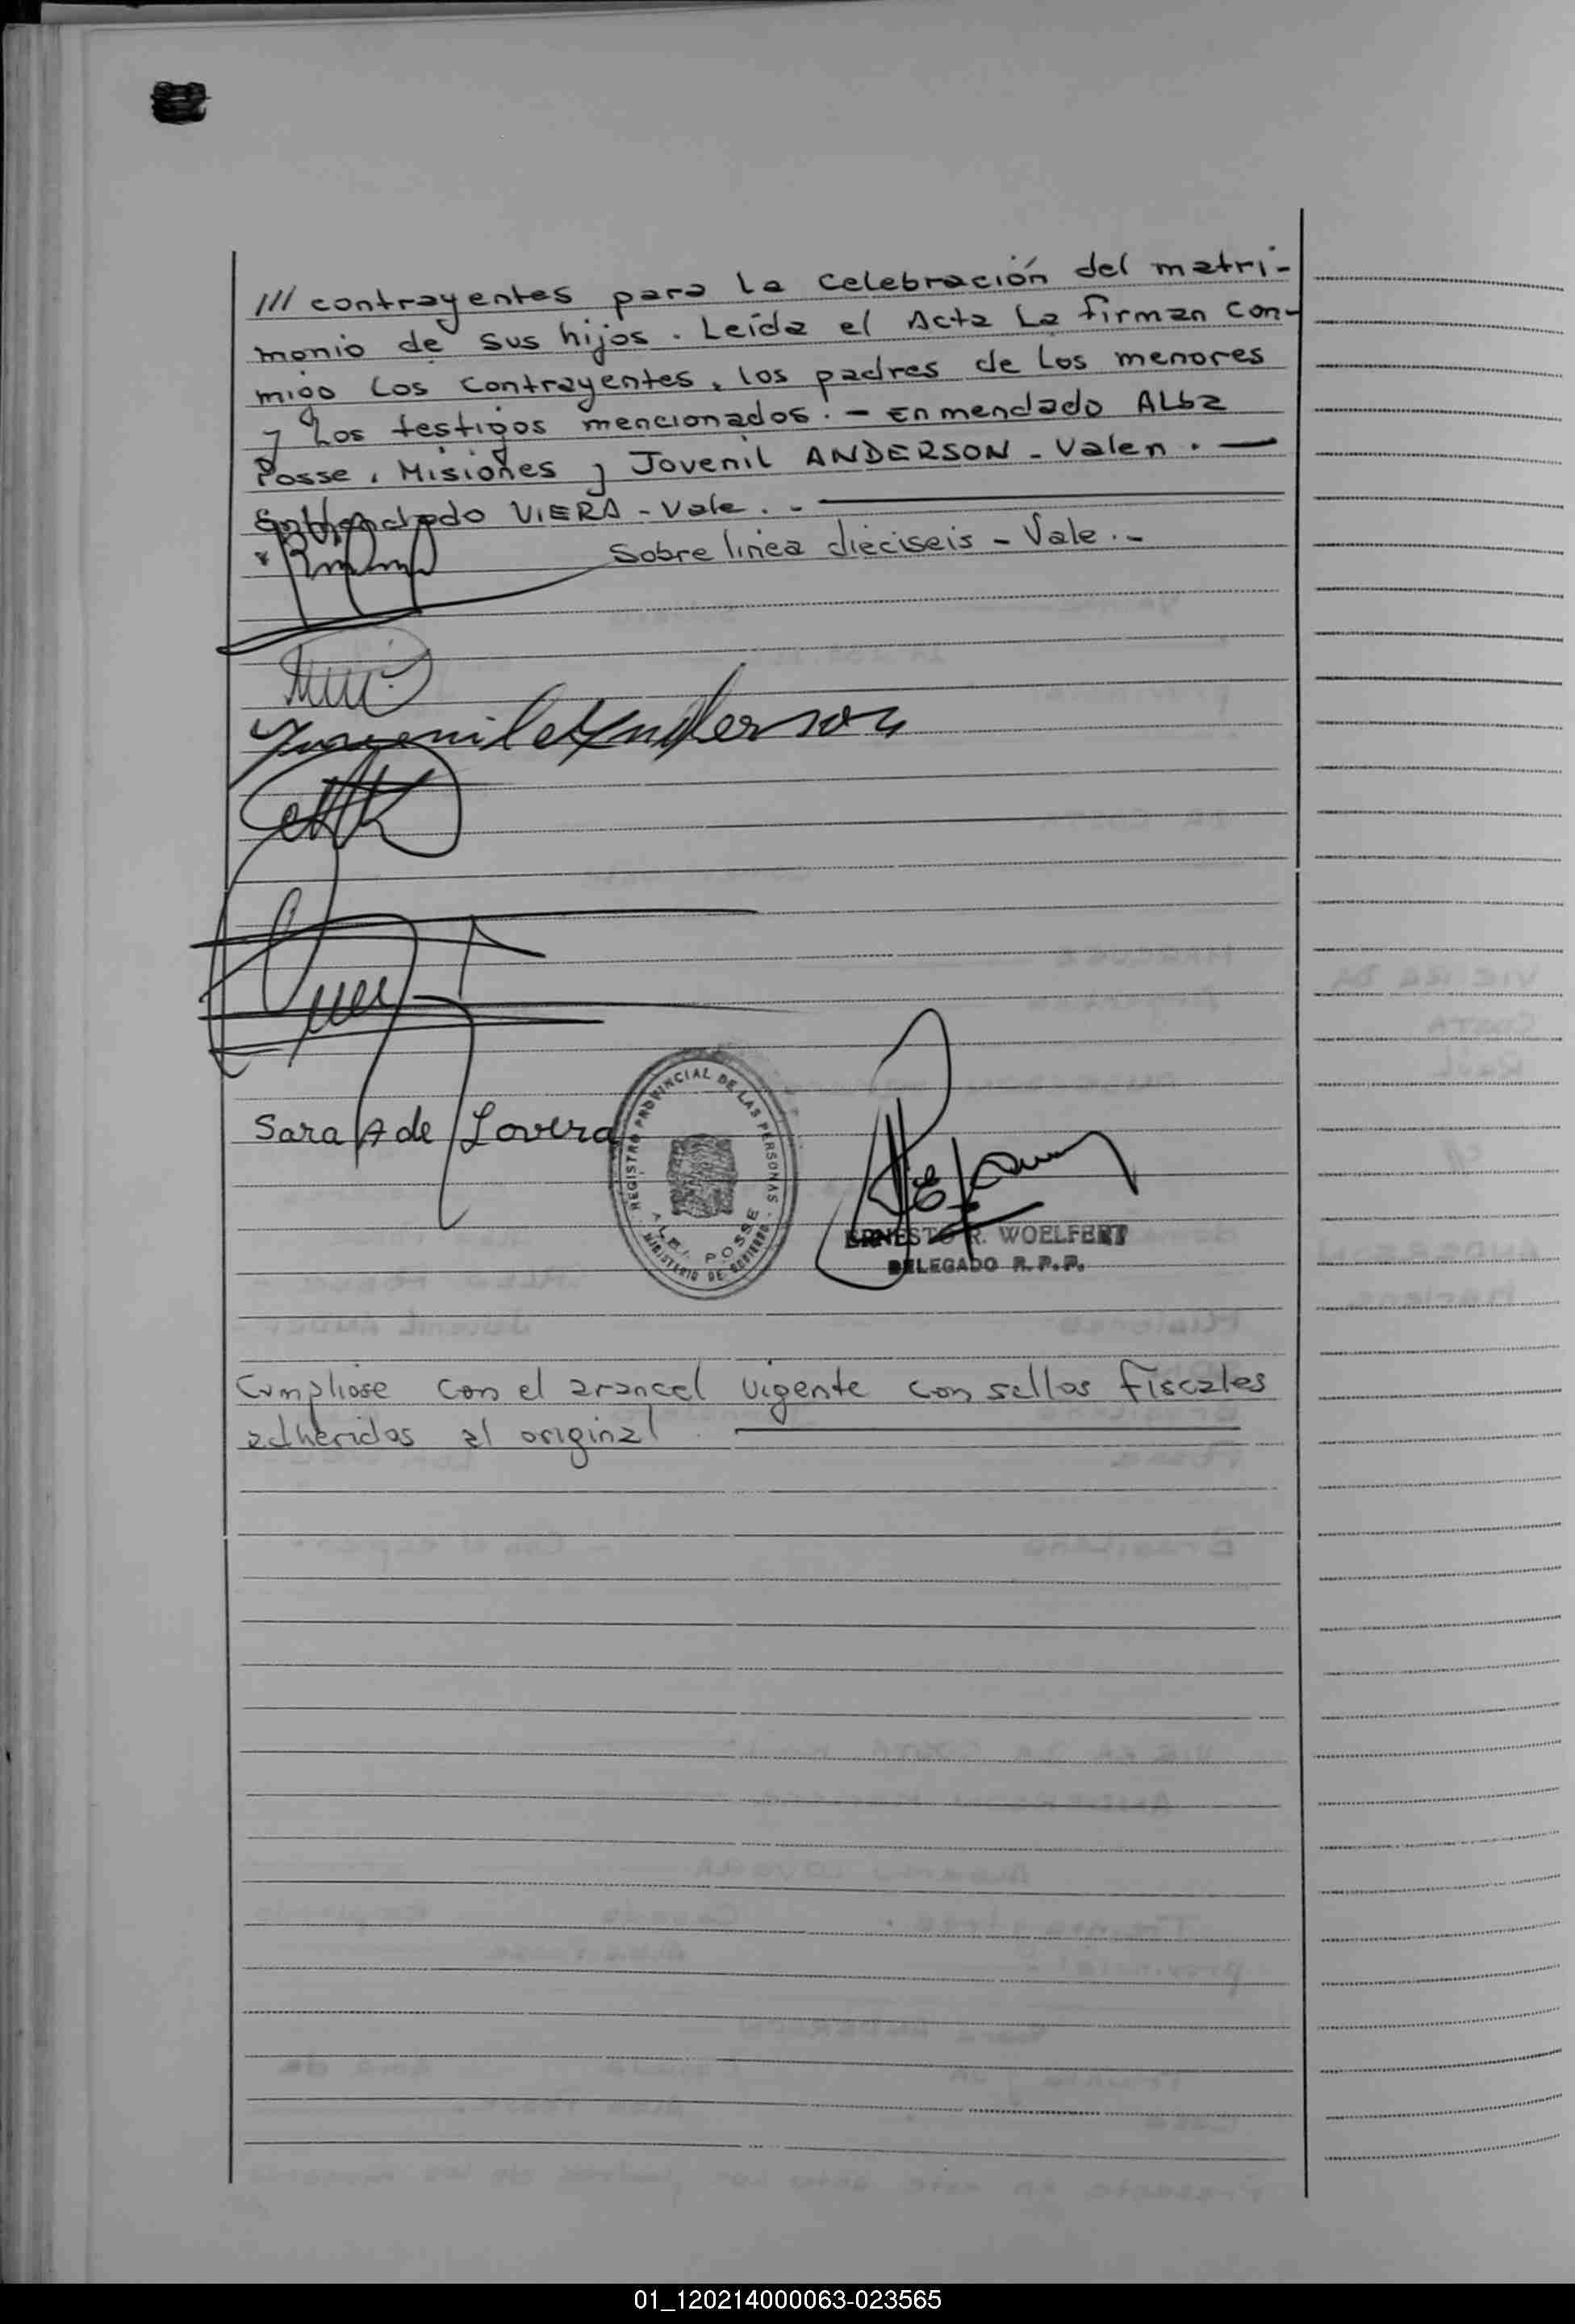 /// contrayentes para la celebración del matri-
monio de sus hijos. Leída el Acta La firman con-
migo Los contrayentes, los padres de Los menores
y Los testigos mencionados. - Enmendado ALba
Posse, Misiones y Jovenil ANDERSON - Valen. —
Enmendado VIERA - Vale. -
Sobre linea dieciseis - Vale. -
Sara A de Lovera
REGISTRO PROVINCIAL DE LAS PERSONAS
ALBA POSSE
MINISTERIO DE GOBIERNO
ERNESTO R. WOELFERT
DELEGADO R. P. P.
Cumpliose con el arancel vigente con sellos fiscales
adheridos al original.
01_120214000063-023565